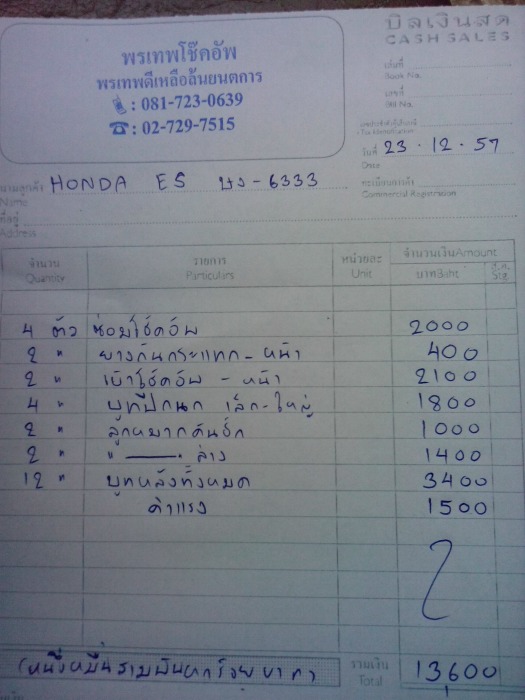 บิลเงินสด
CASH SALES
พรเทพโช๊คอัพ
พรเทพดีเหลือล้นยนตการ
: 081-723-0639
: 02-729-7515
เล่มที่
Book No.
เลขที่
Bill No.
Tax Identification
วันที่ 23 · 12 · 57
Date
ทะเบียนการค้า
Commercial Registration
นามลูกค้า HONDA ES - 6333
Name
ที่อยู่
Address
จำนวน รายการ หน่วยละ จำนวนเงินAmount
Quantity Particulars Unit บาทBaht ส.ต. Stg.
4 ตัว ซ่อมโช๊คอัพ 2000
2 " ยางกันกระแทก - หน้า 400
2 " เบ้าโช๊คอัพ - หน้า 2100
4 " บูทปีกนก เล็ก - ใหญ่ 1800
2 " ลูกหมากคันชัก 1000
2 " " ล่าง 1400
12 " บูทหลังทั้งหมด 3400
ค่าแรง 1500
(หนึ่งหมื่นสามพันหกร้อยบาท) รวมเงิน 13600
Total